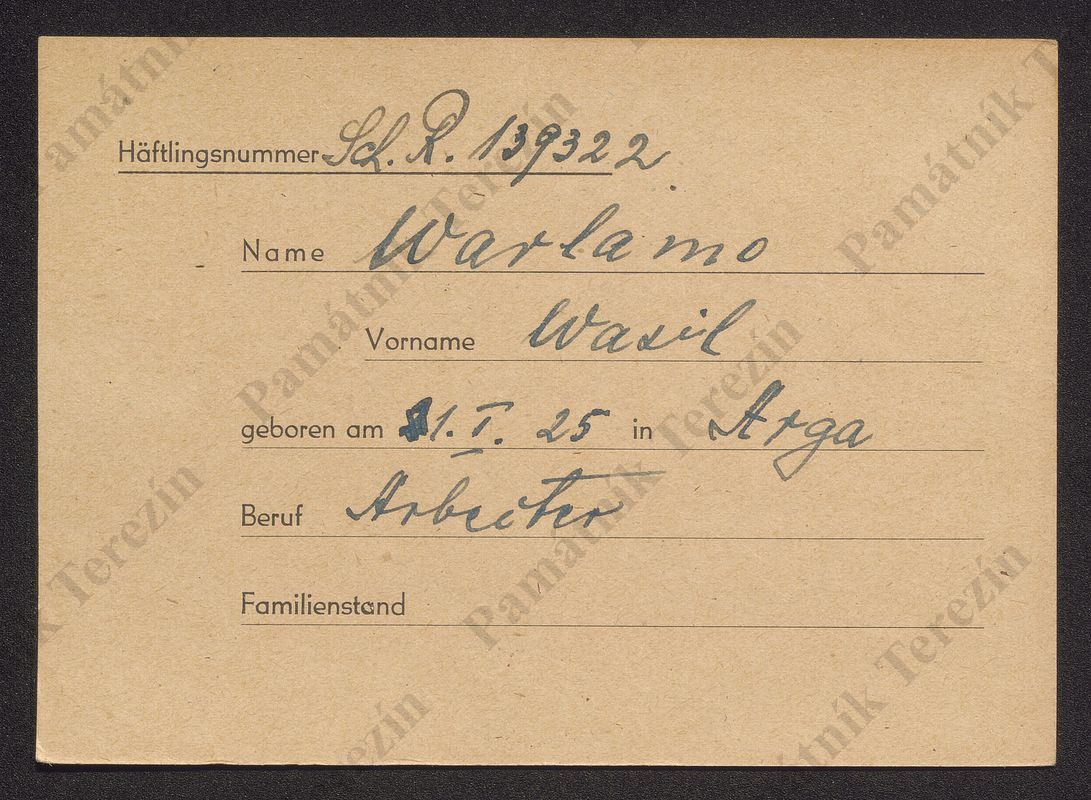 Häftlingsnummer Sch. R. 139322
Name Warlamo
Vorname Wasil
geboren am 1. I. 25 in Arga
Beruf Arbeiter
Familienstand
Památník Terezín